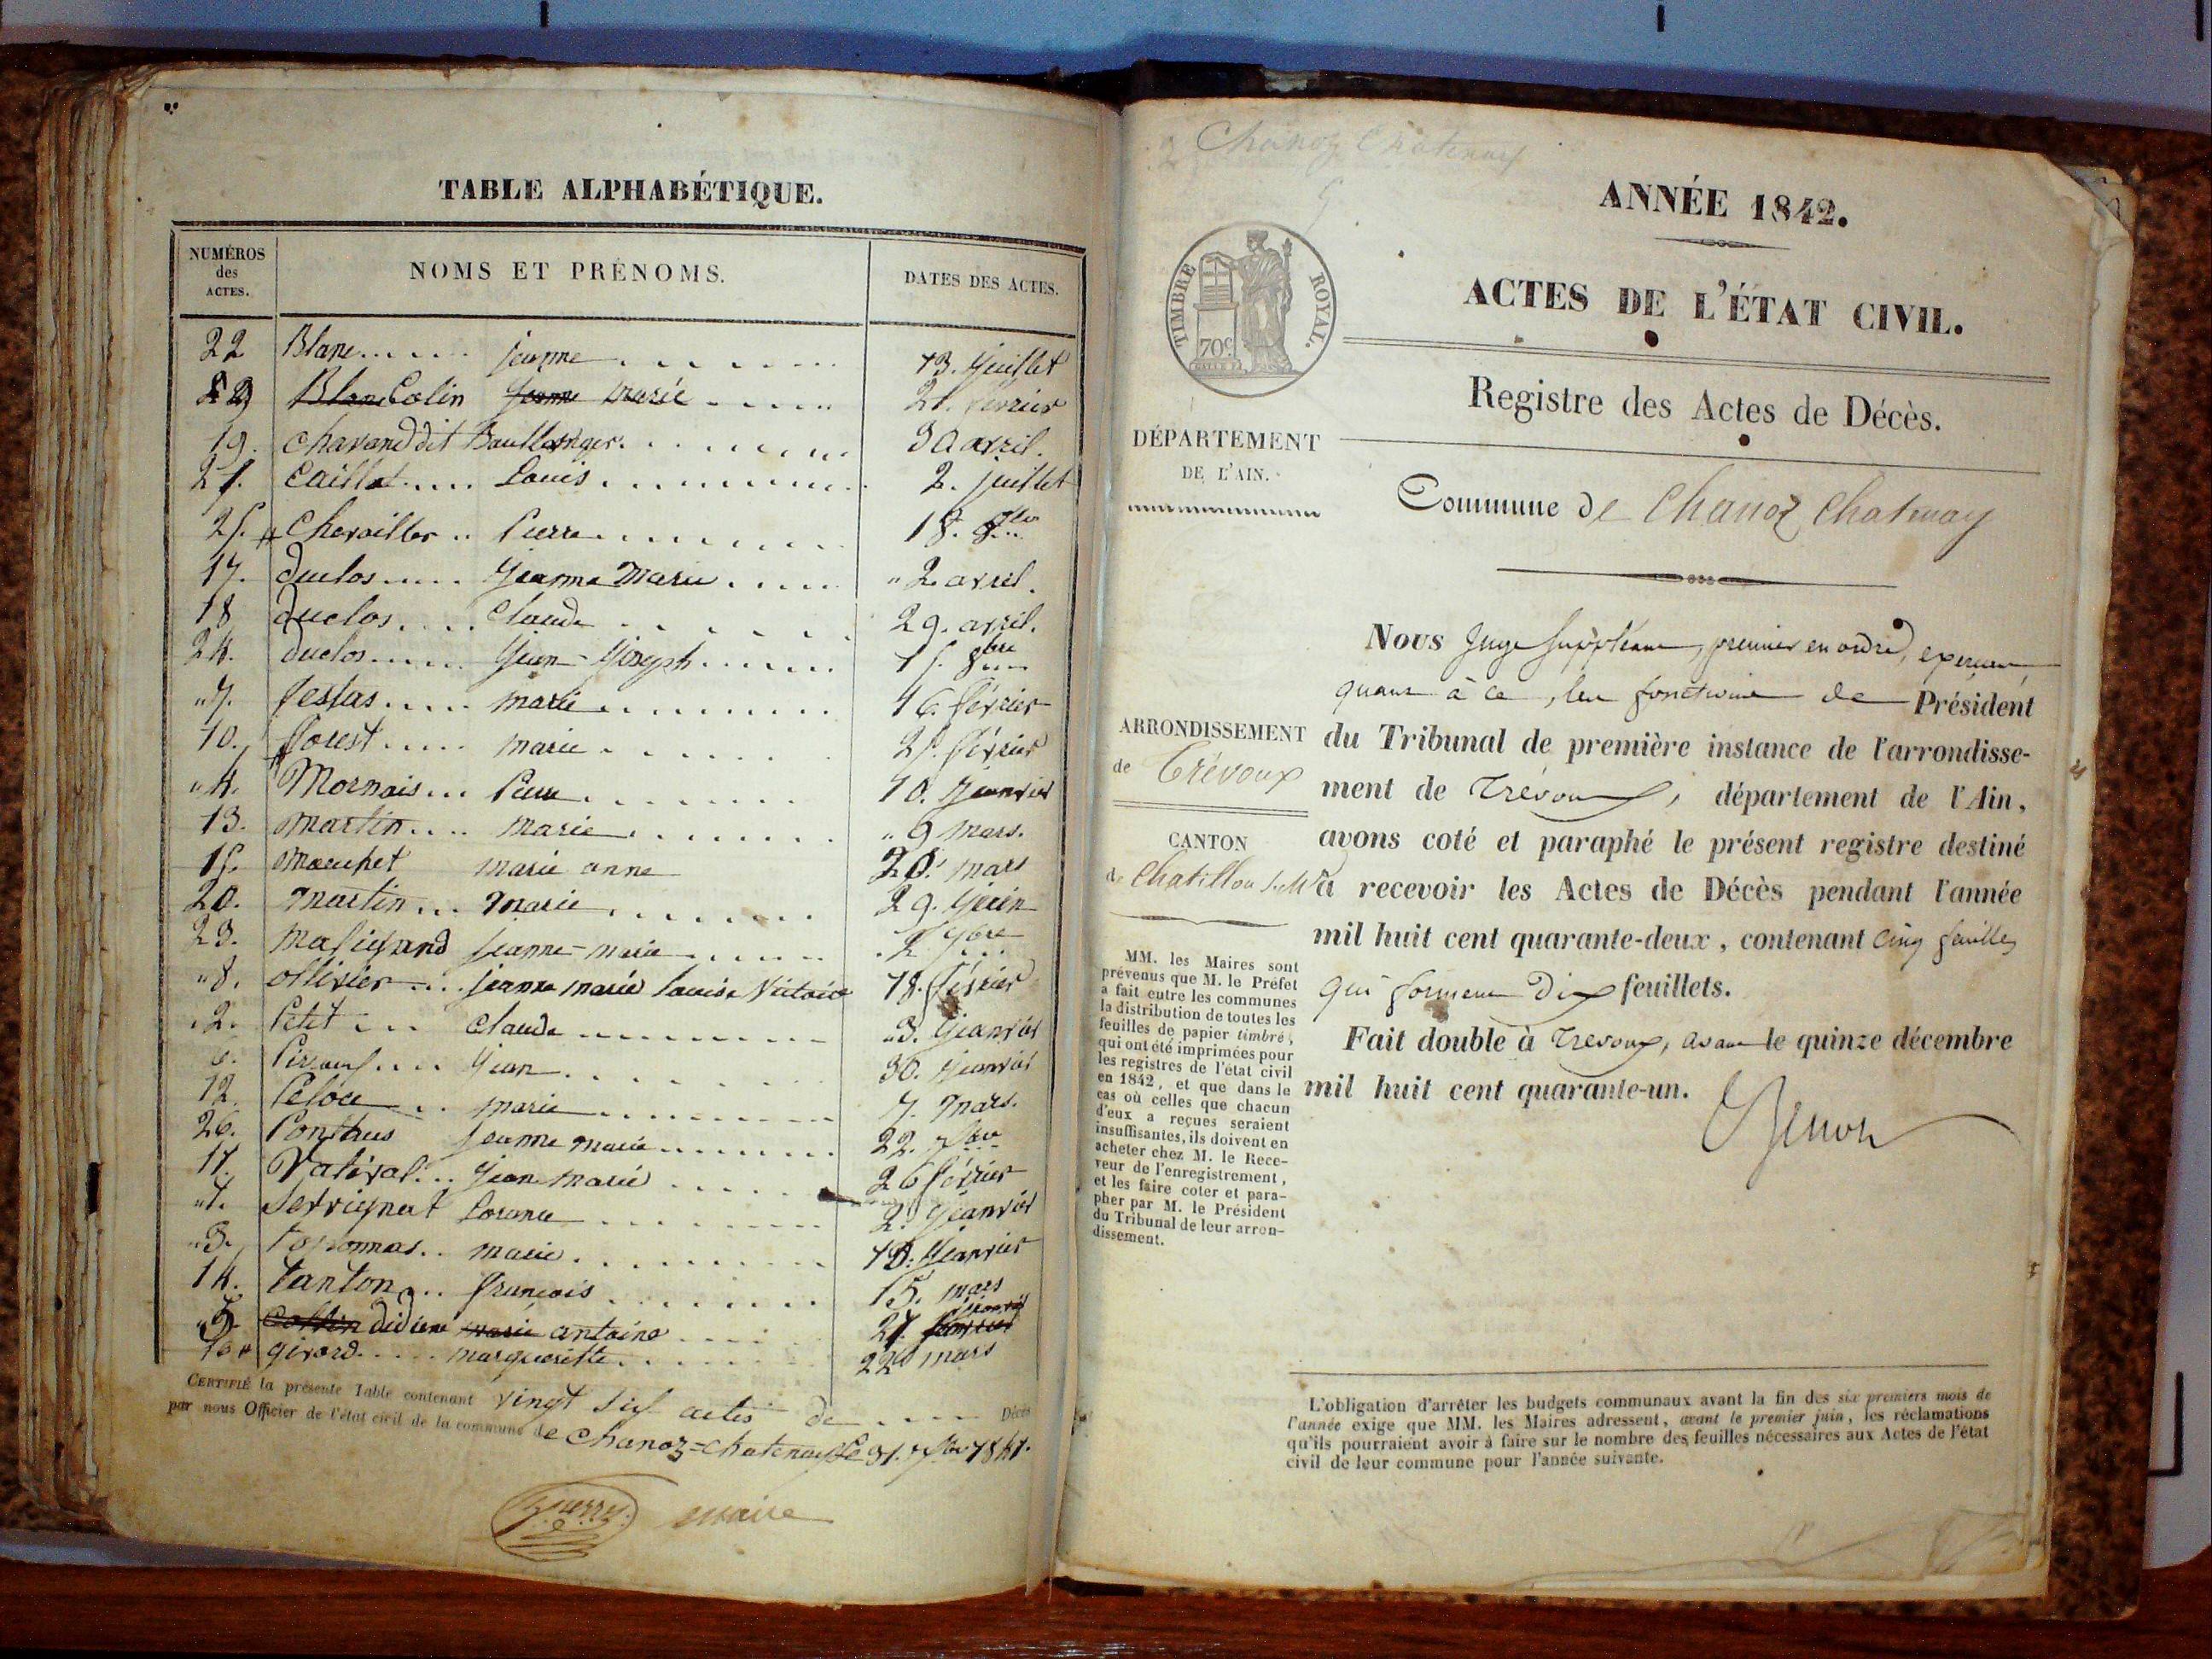 TABLE ALPHABÉTIQUE.
NUMÉROS des ACTES. NOMS ET PRÉNOMS. DATES DES ACTES.
22 Blanc..... jeanne ....... 13. Juillet
Colin marie ..... 21. février
19. Chavand dit ....... 30 avril.
21. Caillat.... Louis ......... 2. juillet
25. Chevailler .. Pierre ........ 18. 8bre
17. duclos..... Jeanne Marie ..... " 2 avril.
18 duclos.... Claude ....... 29. avril.
24. duclos..... Jean-Joseph ...... 15. 8bre
"7. festas..... marie ......... 16. février
10. forest..... marie ...... 25. février
"4. Mornais... Pierre ....... 10. Janvier
13. martin.... marie ........ " 9 mars.
15. Mouchet marie anne 20. mars
20. martin... marie ....... 29. Juin
23. jeanne-marie ...... 2
"8. ollivier.... jeanne marie Louise Victoire 18. février
"2. Petit... Claude ......... "3. Janvier
6. Jean ........ 30. Janvier
12. marie ......... 7. mars.
26. Ponthus jeanne marie ....... 22.
11. Vativat... Jean marie ..... 26 février
"1. Servignat Lorence ......... 2. Janvier
"3. Toponnas.. marie ......... 10. Janvier
14. Tanton... françois ........ 15. mars
"5. didier antoine ..... 27. janvier
16 girord..... marguerite ...... 22 mars
CERTIFIÉ la présente Table contenant vingt six actes de .... Décès
par nous Officier de l'état civil de la commune de Chanoz=Chatenay le 31. Xbre 1841.
maire
Chanoz Chatenay
ANNÉE 1842.
ACTES DE L'ÉTAT CIVIL.
TIMBRE ROYAL.
70c.
Registre des Actes de Décès.
DÉPARTEMENT
DE L'AIN.
Commune de Chanoz Chatenay
Nous Juge Suppléant, premier en ordre, exerçant
quant à ce, les fonctions de Président
ARRONDISSEMENT
de Trévoux
du Tribunal de première instance de l'arrondisse-
ment de Trévoux, département de l'Ain,
CANTON
de Chatillon
avons coté et paraphé le présent registre destiné
à recevoir les Actes de Décès pendant l'année
mil huit cent quarante-deux, contenant cinq feuilles
qui forment Dix feuillets.
Fait double à Trévoux, avant le quinze décembre
mil huit cent quarante-un.
MM. les Maires sont
prévenus que M. le Préfet
a fait entre les communes
la distribution de toutes les
feuilles de papier timbré,
qui ont été imprimées pour
les registres de l'état civil
en 1842, et que dans le
cas où celles que chacun
d'eux a reçues seraient
insuffisantes, ils doivent en
acheter chez M. le Rece-
veur de l'enregistrement,
et les faire coter et para-
pher par M. le Président
du Tribunal de leur arron-
dissement.
L'obligation d'arrêter les budgets communaux avant la fin des six premiers mois de
l'année exige que MM. les Maires adressent, avant le premier juin, les réclamations
qu'ils pourraient avoir à faire sur le nombre des feuilles nécessaires aux Actes de l'état
civil de leur commune pour l'année suivante.